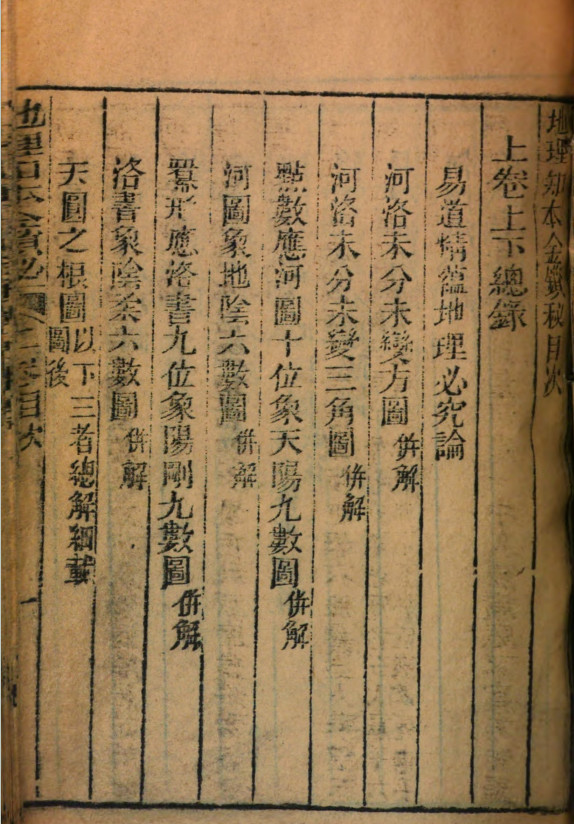 地理知本金鎖秘目次
上卷上下總錄
易道精蘊地理必究論
河洛未分未變方圖 併解
河洛未分未變三角圖 併解
點數應河圖十位象天陽九數圖 併解
河圖象地陰六數圖 併解
冪形應洛書九位象陽剛九數圖 併解
洛書象陰柔六數圖 併解
天圓之根圖 以下三者總解細載圖後
地理知本金鎖秘
目次
一